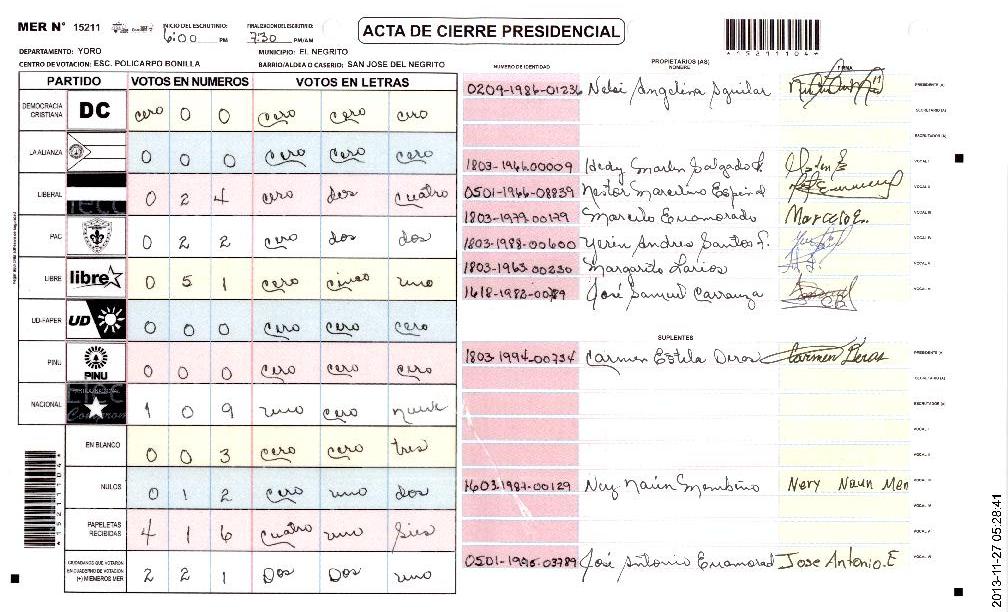 MER N° 15211 INICIO DEL ESCRUTINIO: 6:00 PM FINALIZACION DEL ESCRUTINIO: 7:30 PM/AM ACTA DE CIERRE PRESIDENCIAL
*15211104*
DEPARTAMENTO: YORO MUNICIPIO: EL NEGRITO
CENTRO DE VOTACION: ESC. POLICARPO BONILLA BARRIO/ALDEA O CASERIO: SAN JOSE DEL NEGRITO
PARTIDO VOTOS EN NUMEROS VOTOS EN LETRAS
DEMOCRACIA CRISTIANA DC cero 0 0 cero cero cero
LA ALIANZA 0 0 0 cero cero cero
LIBERAL 0 2 4 cero dos cuatro
PAC 0 2 2 cero dos dos
LIBRE libre 0 5 1 cero cinco uno
UD-FAPER UD 0 0 0 cero cero cero
PINU PINU 0 0 0 cero cero cero
NACIONAL 1 0 9 uno cero nueve
EN BLANCO 0 0 3 cero cero tres
NULOS 0 1 2 cero uno dos
PAPELETAS RECIBIDAS 4 1 6 cuatro uno sies
CIUDADANOS QUE VOTARON EN CUADERNO DE VOTACION (+) MIEMBROS MER 2 2 1 Dos Dos uno
NUMERO DE IDENTIDAD PROPIETARIOS (AS) NOMBRE FIRMA
0209-1986-01236 Nelsi Angelina Aguilar PRESIDENTE (A)
SECRETARIO (A)
ESCRUTADOR (A)
1803-1966-00009 Hedy Marlen Salgado VOCAL I
0501-1966-08839 Nestor Marcelino Espinal VOCAL II
1803-1979-00179 Marcelo Enamorado Marcelo E. VOCAL III
1803-1988-00600 Yerin Andres Santos VOCAL IV
1803-1963-00230 Margarito Larios VOCAL V
1618-1983-00789 José Samuel Carranza
SUPLENTES
1803-1994-00734 Carmen Estila Deras Carmen Deras PRESIDENTE (A)
SECRETARIO (A)
ESCRUTADOR (A)
VOCAL I
VOCAL II
1603-1987-00129 Nery Naun Membreño Nery Naun Mem VOCAL III
VOCAL IV
VOCAL V
0501-1996-03789 José Antonio Enamorad Jose Antonio.E
*15211104*
2013-11-27 05:28:41